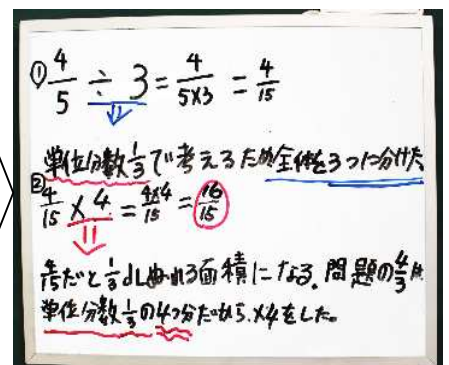 ① 4/5 ÷ 3 = 4/5×3 = 4/15
単位分数1/3で考えるため全体を3つに分けた
② 4/15 × 4 = 4×4/15 = 16/15
4/15だと1/3dLぬれる面積になる。問題の4/3は
単位分数1/3の4つ分だから、×4をした。